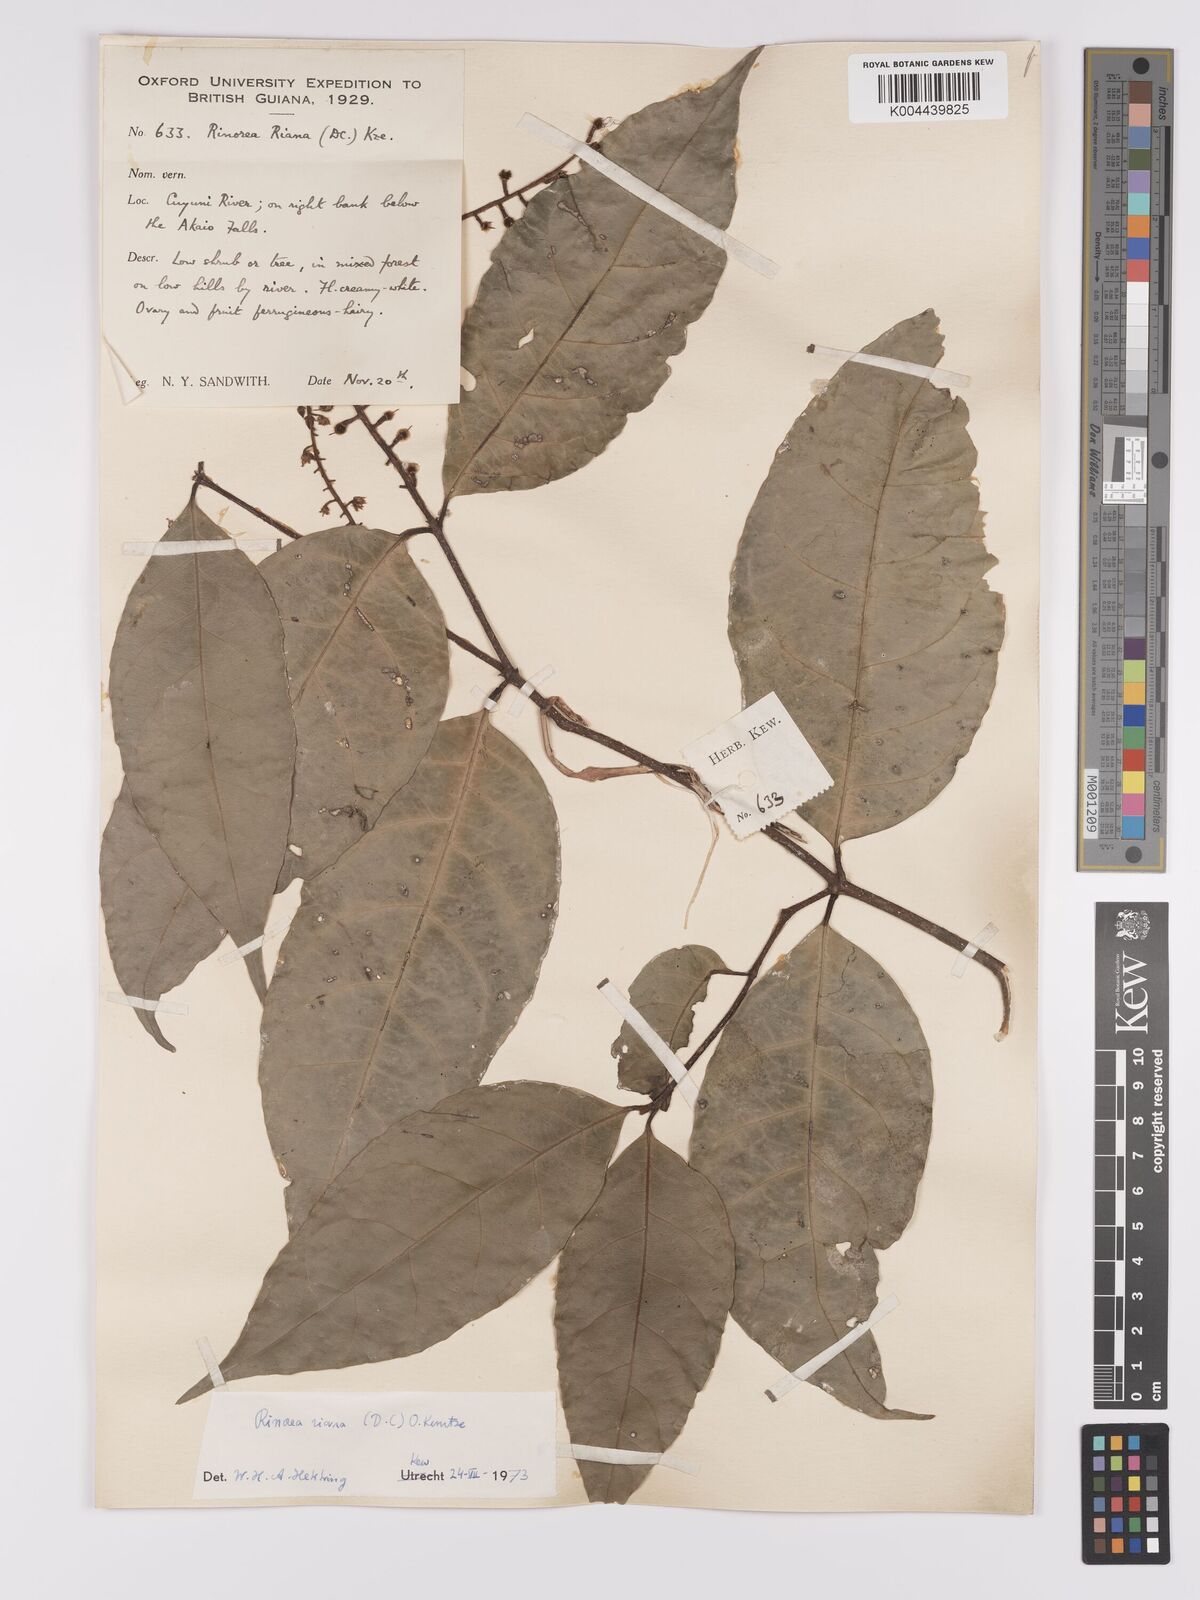 OXFORD UNIVERSITY EXPEDITION TO
BRITISH GUIANA, 1929.
No. 633. Rinorea Riana (DC.) Kze.
Nom. vern.
Loc. Cuyuni River; on right bank below
the Akaio Falls.
Descr. Low shrub or tree, in mixed forest
on low hills by river. Fl. creamy-white.
Ovary and fruit ferrugineous-hairy.
eg. N. Y. SANDWITH. Date Nov. 20th.
ROYAL BOTANIC GARDENS KEW
K004439825
HERB. KEW.
No. 633
Rinorea riana (D.C) O. Kuntze
Det. W. H. A. Hekking Kew Utrecht 24-VII-1973
inches
Don Williams
M001209
centimeters
Kew
Royal Botanic Gardens
0 1 2 3 4 5 6 7 8 9 10
cm
copyright reserved